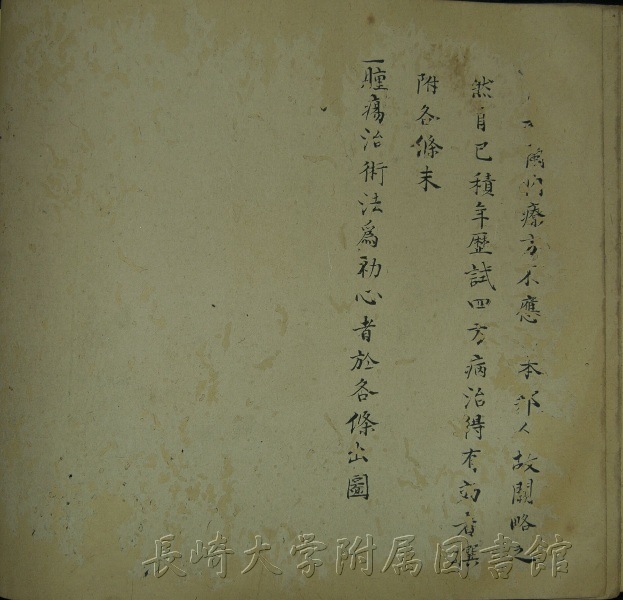 爾療方不應本邦人故闕略之
然自己積年歴試四方病治得有効者撰
附各條末
一腫瘍治術法爲初心者於各條出圖
長崎大学附属図書館